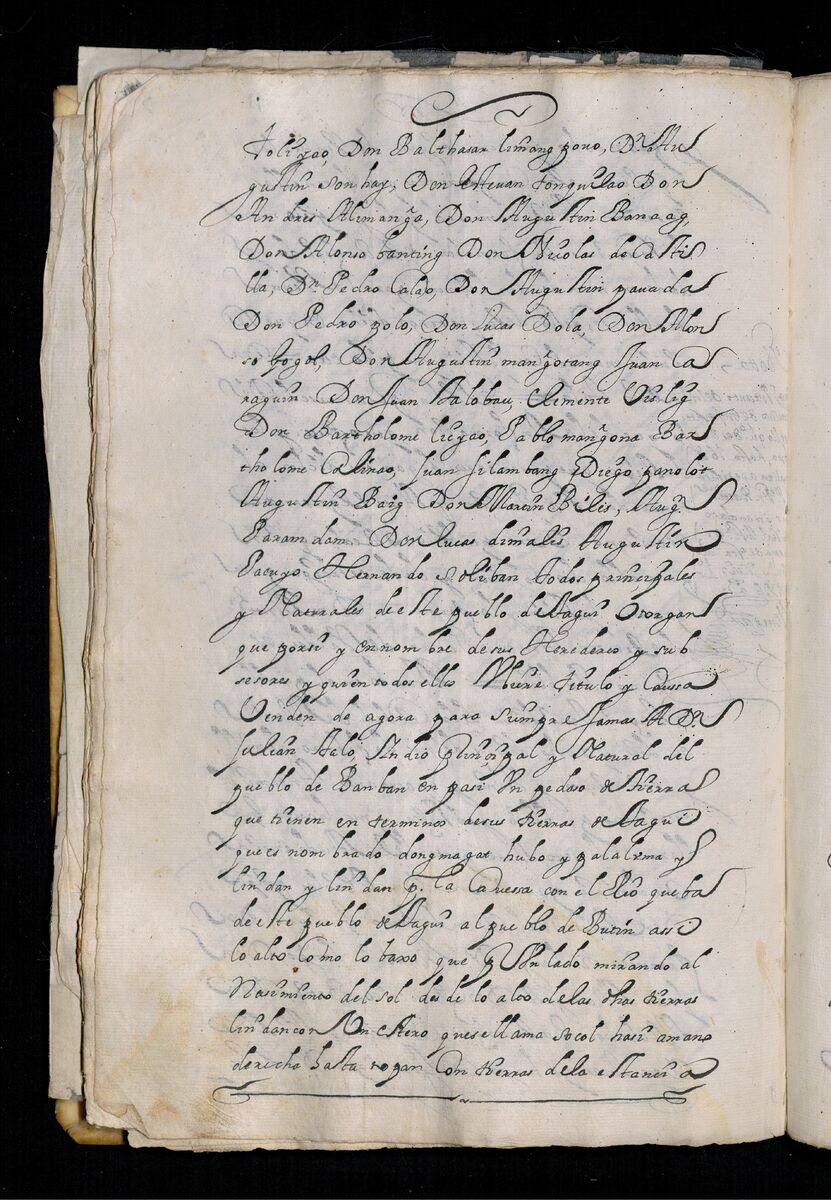 Toliyao, Don Balthasar limang povo, Dn. Au
gustin sonhay, Don estevan tongulao Don
Andres Alimanga, Don Augustin Banaag,
Don Alonso banting Don Nicolas de Casti
lla, Dn. Pedro Calao, Don Augustin pavada
Don Pedro polo, Don Lucas Dola, Don Alon
so bogol, Don Augustin mangotang Juan Ca
raguin Don Juan Halobau, Clemente
Don Bartholome licyao, Pablo mangona Bar
tholome Calinao, Juan silambang Diego panolot
Augustin Baig Don Martin Bilis, Augn.
Paramdam, Don lucas dimalis Augustin
Pacuyo Hernando Soliban todos principales
y Naturales de este pueblo de Hagui Otorgan
que por si y en nombre de sus Herederos y sub
sesores y quien todos ellos Vbiere titulo y Caussa
Venden de agora para siempre Jamas A Dn.
Julian Halo, Indio principal y Natural del
pueblo de Banban en pasi Vn pedaso de tierra
que tienen en terminos de sus tierras de Hagui
que es nombrado dongmagat hubo y palalema y
lindan y lindan p. la Cavessa con el Rio que ba
de este pueblo de Hagui al pueblo de Butin assi
lo alto Como lo baxo que p Vn lado mirando al
Nasimiento del sol desde lo alto de las dhas tierras
lindan con Vn estero que se llama socol hasi a mano
derecha hasta topar Con tierras de la estancia